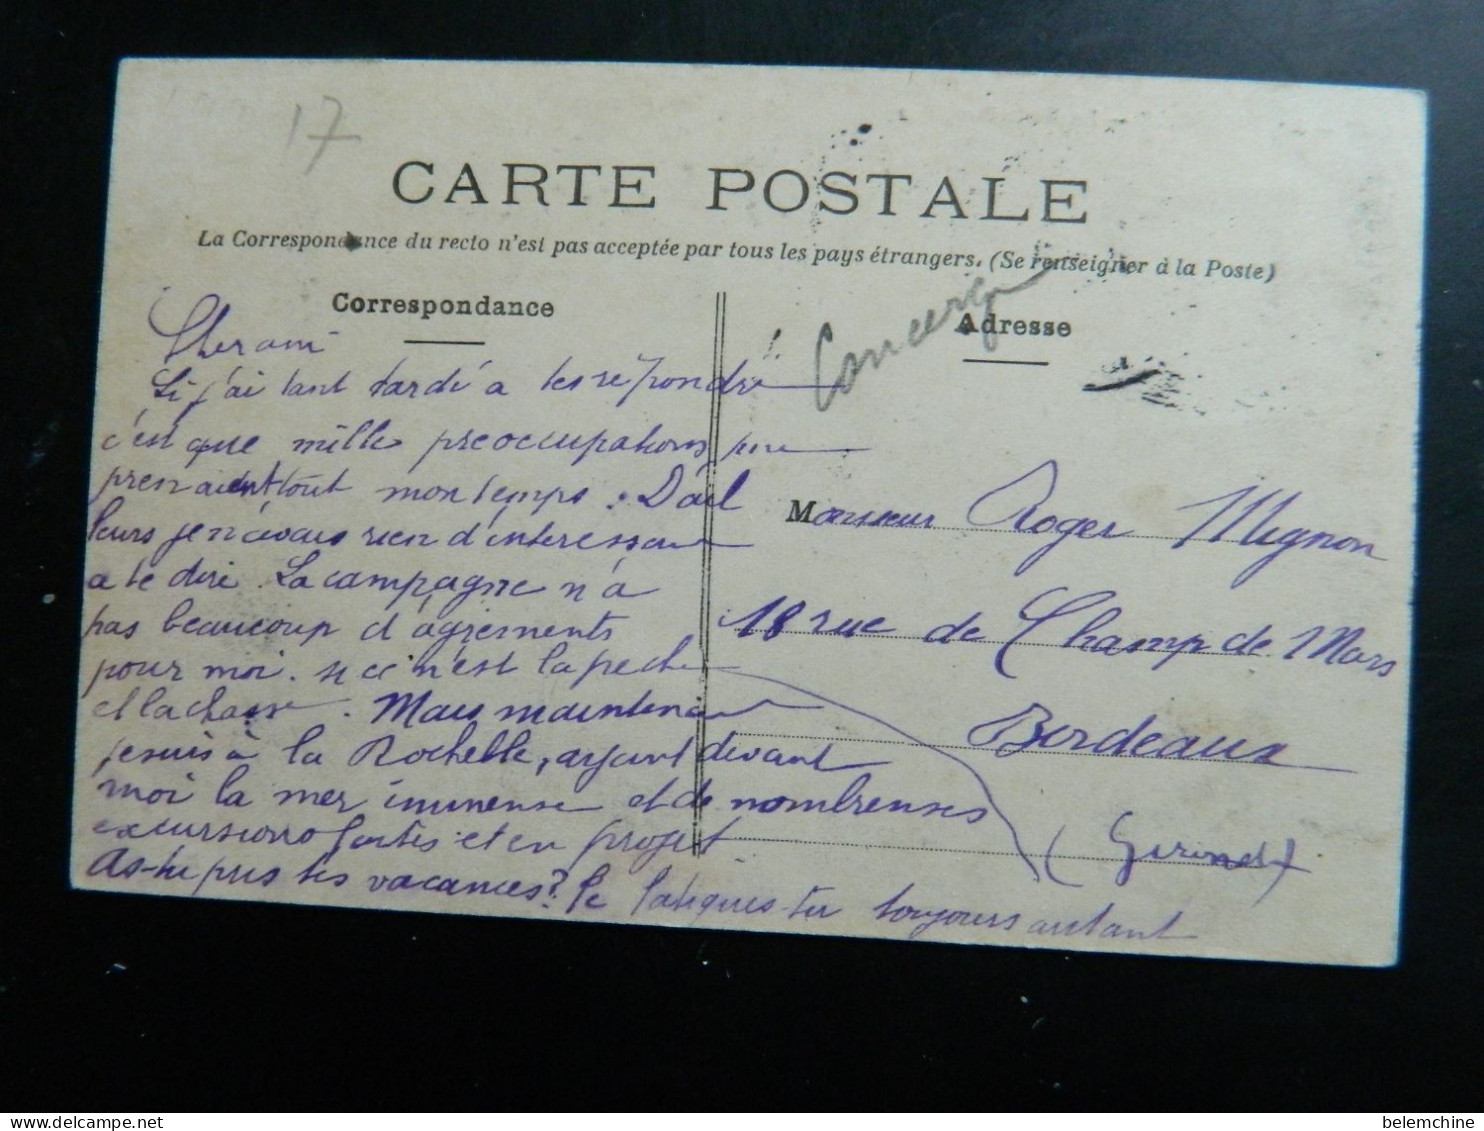 17
CARTE POSTALE
La Correspondance du recto n'est pas acceptée par tous les pays étrangers. (Se renseigner à la Poste)
Correspondance
Cher ami
Si j'ai tant tardé a te répondre
c'est que mille préoccupations me
prenaient tout mon temps. D'ail
leurs je n'avais rien d'interessant
a te dire. La campagne n'a
pas beaucoup d'agréments
pour moi. si ce n'est la peche
et la chasse. Mais maintenant
je suis à la Rochelle, ayant devant
moi la mer immense et de nombreuses
excursions faites et en projet
As-tu pris tes vacances? Te fatigues-tu toujours autant
Adresse
Monsieur Roger Mignon
18 rue de Champ de Mars
Bordeaux
(Gironde)
belemchine